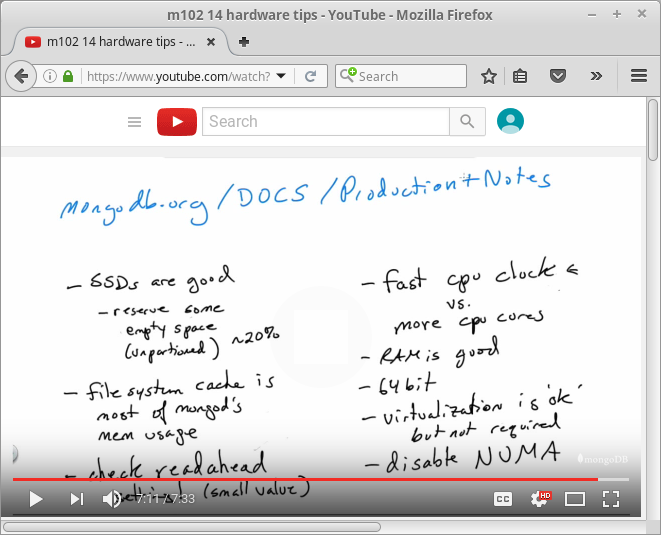 m102 14 hardware tips - YouTube - Mozilla Firefox
m102 14 hardware tips - ...
https://www.youtube.com/watch?
Search
Search
mongodb.org/DOCS/Production+Notes
- SSDs are good
- reserve some
empty space
(unpartioned) ~20%
- file system cache is
most of mongod's
mem usage
- check readahead
settings! (small value)
- fast cpu clock ←
vs.
more cpu cores
- RAM is good
- 64 bit
- virtualization is 'ok'
but not required
- disable NUMA
mongoDB
7:11 / 7:33
CC
HD